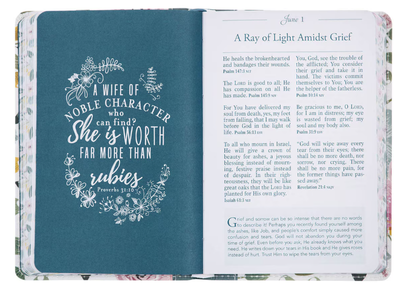 A WIFE OF
NOBLE CHARACTER
who
can find?
She is WORTH
FAR MORE THAN
rubies
Proverbs 31:10
June 1
A Ray of Light Amidst Grief
He heals the brokenhearted
and bandages their wounds.
Psalm 147:3
The LORD is good to all; He
has compassion on all He
has made. Psalm 145:9
For You have delivered my
soul from death, yes, my feet
from falling, that I may walk
before God in the light of
life. Psalm 56:13
To all who mourn in Israel,
He will give a crown of
beauty for ashes, a joyous
blessing instead of mourn-
ing, festive praise instead
of despair. In their righ-
teousness, they will be like
great oaks that the LORD has
planted for His own glory.
Isaiah 61:3
You, God, see the trouble of
the afflicted; You consider
their grief and take it in
hand. The victims commit
themselves to You; You are
the helper of the fatherless.
Psalm 10:14
Be gracious to me, O LORD,
for I am in distress; my eye
is wasted from grief; my
soul and my body also.
Psalm 31:9
"God will wipe away every
tear from their eyes; there
shall be no more death, nor
sorrow, nor crying. There
shall be no more pain, for
the former things have pas-
sed away."
Revelation 21:4
Grief and sorrow can be so intense that there are no words
to describe it! Perhaps you recently found yourself among
the ashes, like Job, and people's comfort simply caused more
confusion and tears. God will not abandon you during your
time of grief. Even before you ask, He already knows what you
need. He writes down your tears in His book and He gives more
instead of hurt. Trust Him to wipe the tears from your eyes.